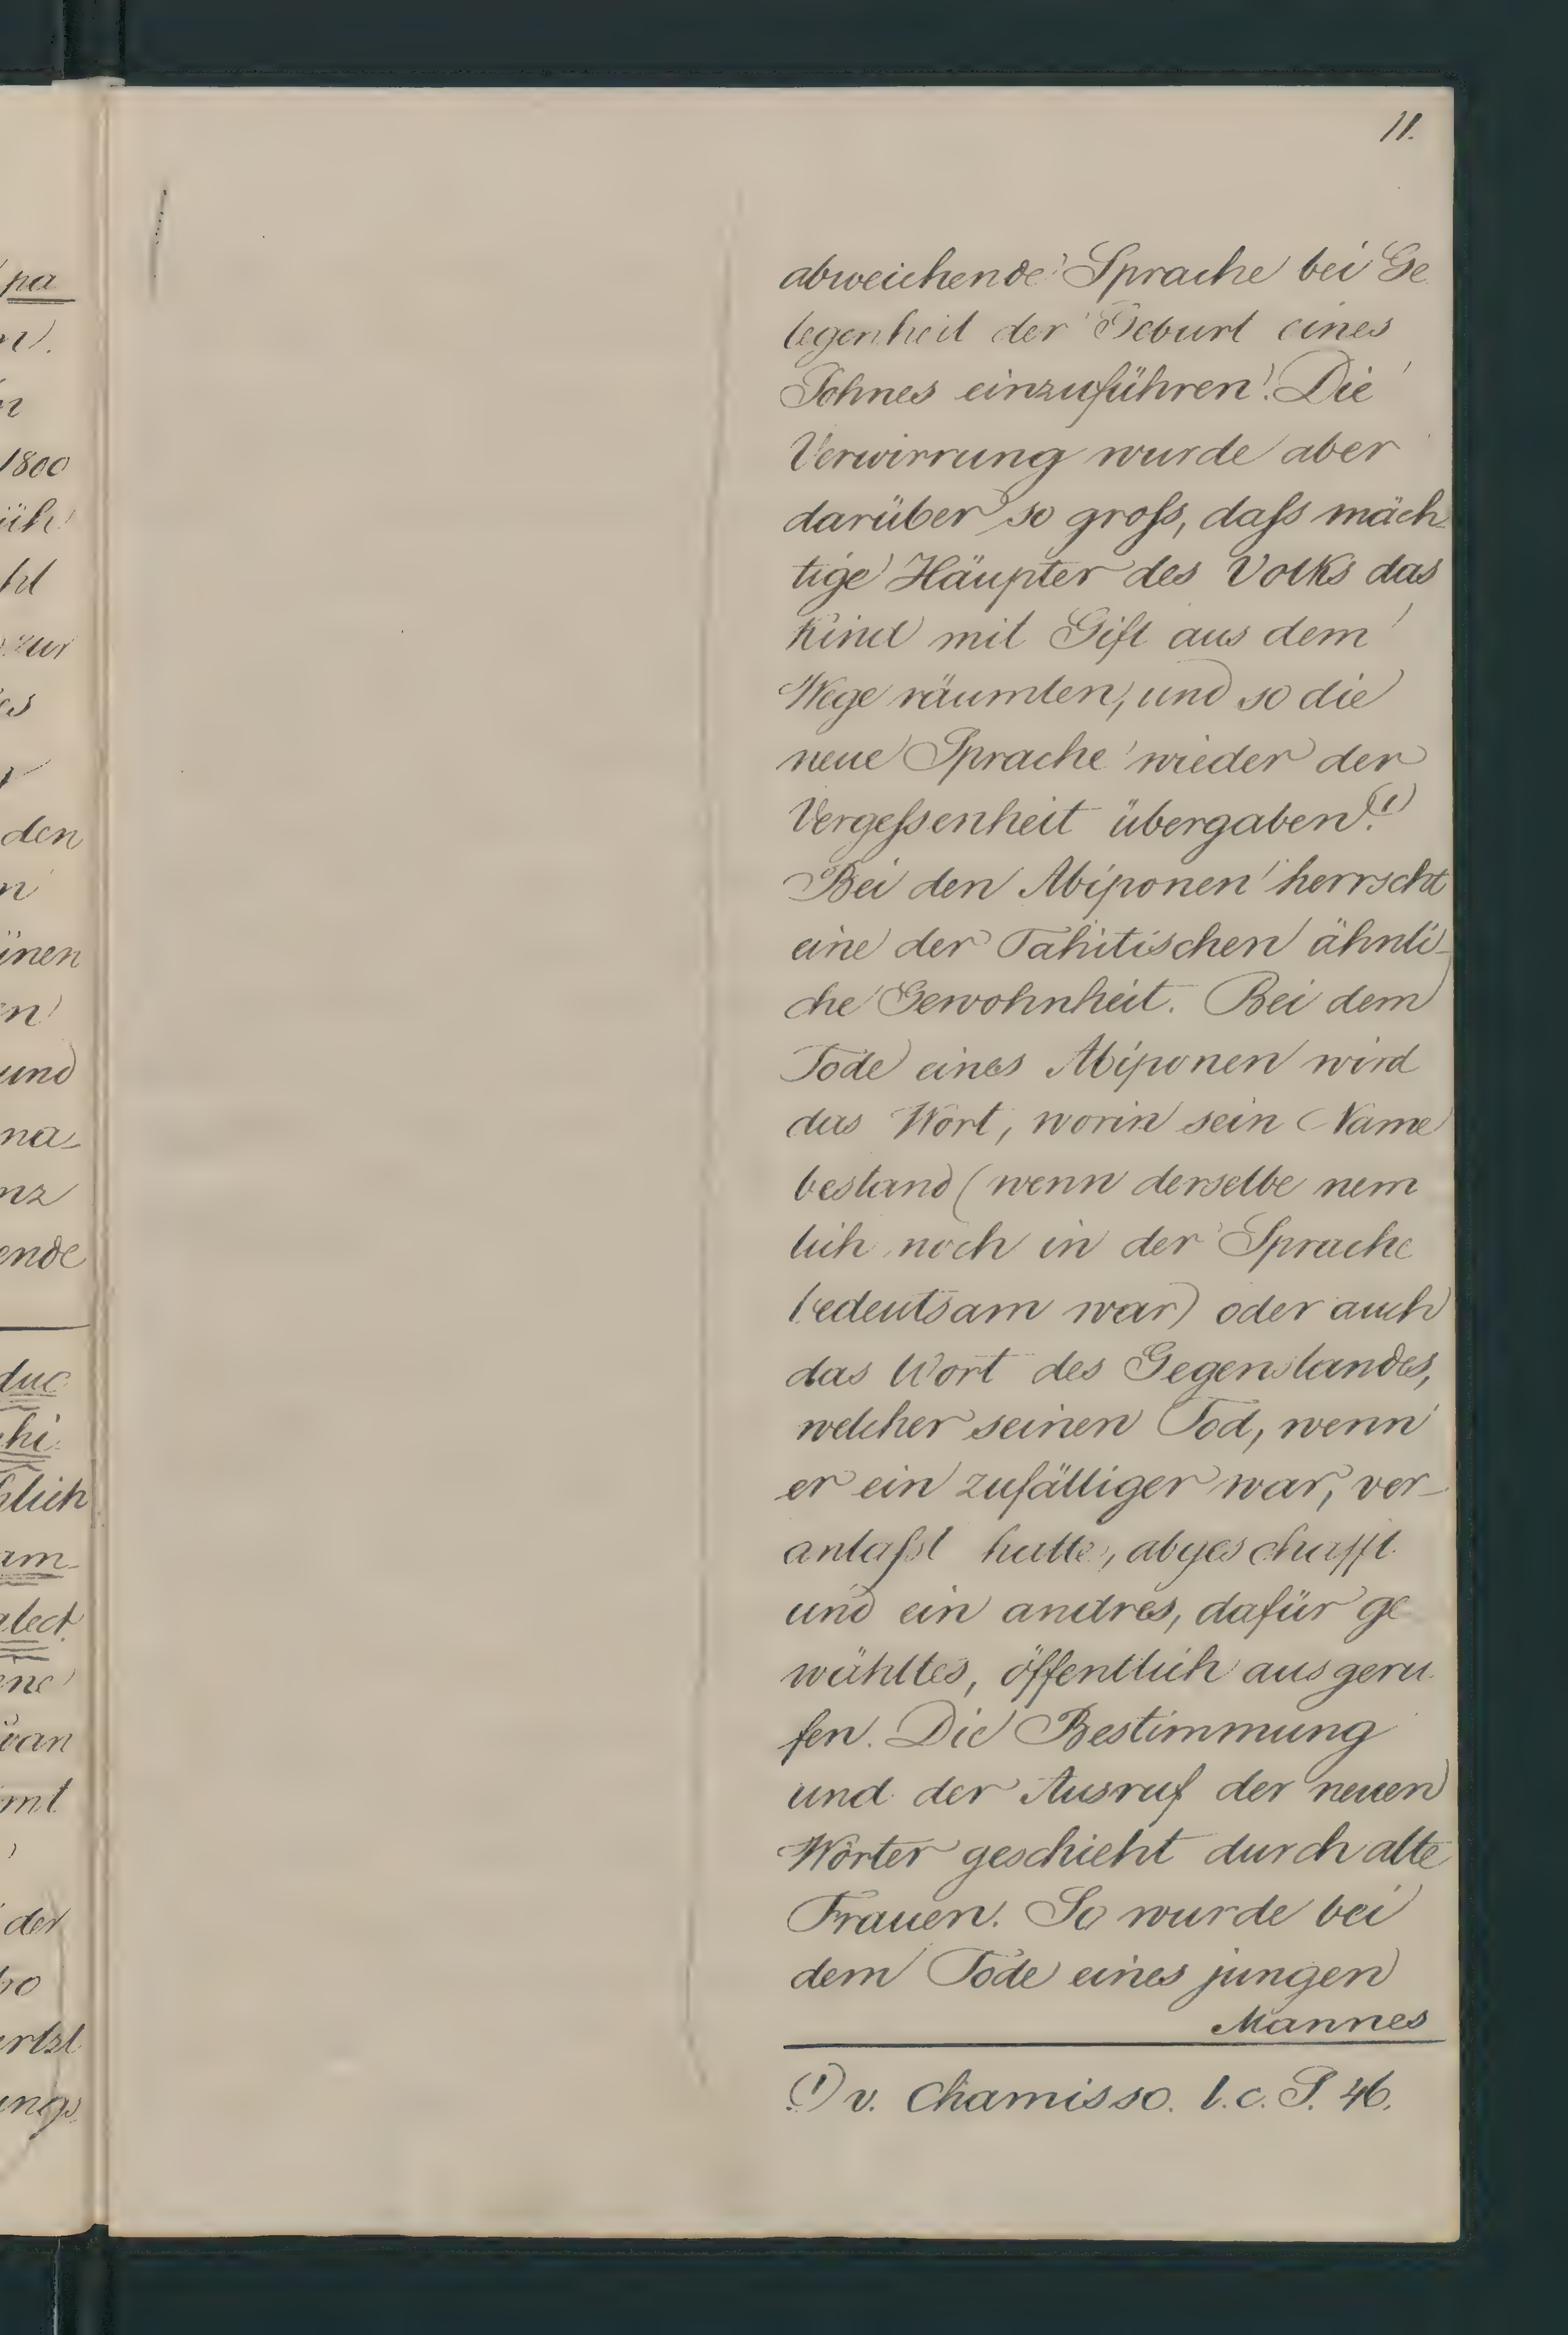 11.
abweichende Sprache bei Ge
legenheit der Geburt eines
Sohnes einzuführen. Die
Verwirrung wurde aber
darüber so groſs, daſs mäch-
tige Häupter des Volks das
Kind mit Gift aus dem
Wege räumten, und so die
neue Sprache wieder der
Vergeſsenheit übergaben.(1)
Bei den Abiponen herrscht
eine der Tahitischen ähnli-
che Gewohnheit. Bei dem
Tode eines Abiponen wird
das Wort, worin sein Name
bestand (wenn derselbe nem
lich noch in der Sprache
bedeutsam war) oder auch
das Wort des Gegenstandes,
welcher seinen Tod, wenn
er ein zufälliger war, ver-
anlaſst hatte, abgeschafft
und ein andres, dafür ge
wähltes, öffentlich ausgeru
fen. Die Bestimmung
und der Ausruf der neuen
Wörter geschieht durch alte
Frauen. So wurde bei
dem Tode eines jungen
Mannes
(1) v. Chamisso. l. c. S. 46.
pa
1800
zur
den
inen
und
na-
nz
ende
duc
chi
lich
am-
alect
van
der